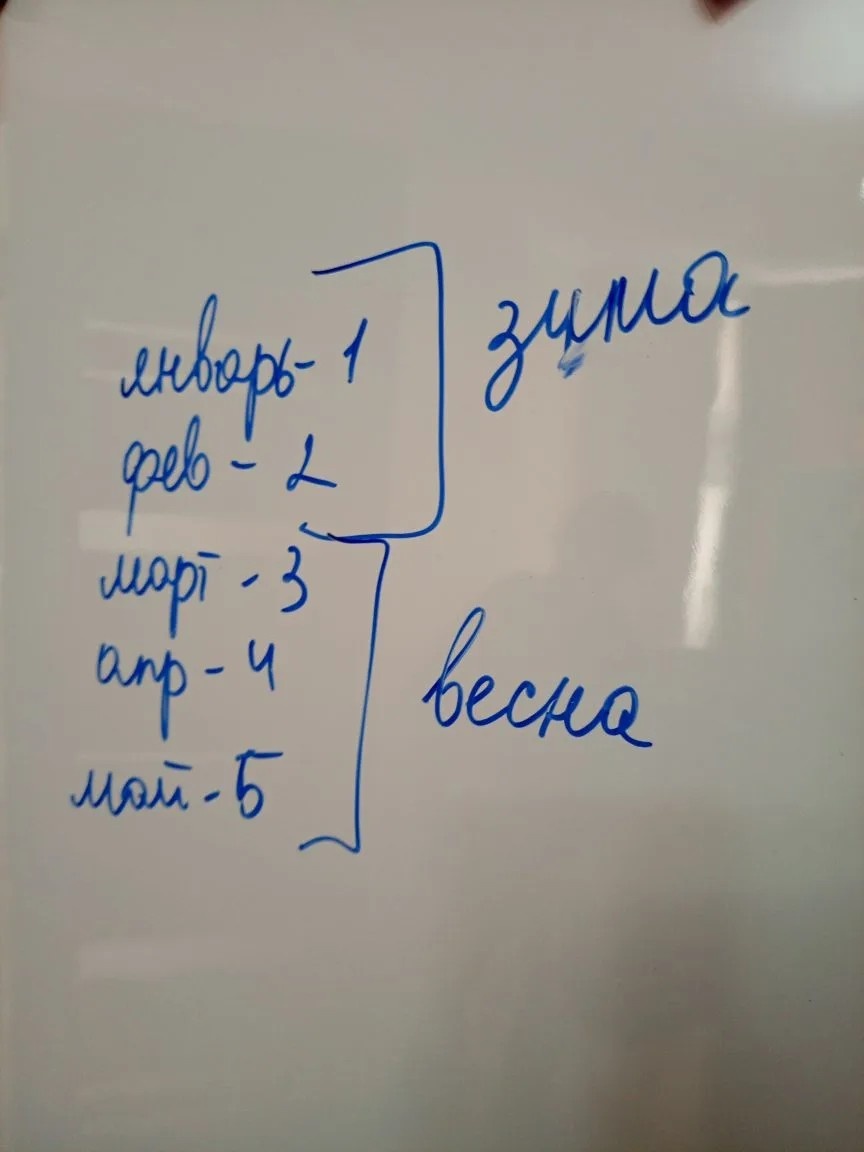 январь - 1
зима
фев - 2
март - 3
апр - 4
весна
май - 5